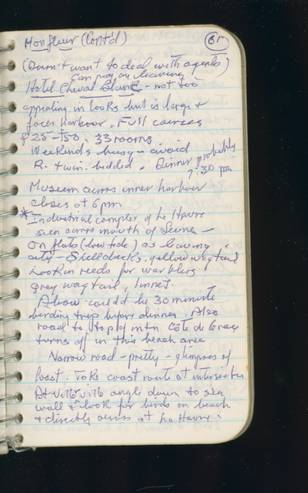 Honfleur (Cont'd) 61
(Doesn't want to deal with agents)
Can pay on leaving
Hotel Cheval Blanc - not too
appealing in looks but is large &
faces harbour. Full courses
$25-$50. 33 rooms
Weekends busy - avoid
R. twin bedded. Dinner probably
7:30 pm
Museum across inner harbour
closes at 6 pm
* Industrial complex of Le Havre
seen across mouth of Seine -
On flats (low tide) as leaving
city - Shelducks, yellow wagtail
Look in reeds for warblers
grey wagtail, linnet
Above could be 30 minute
birding trip before dinner. Also
road to top of mtn Côte de Grace
turns off in this beach area
Narrow road - pretty - glimpses of
coast. Take coast route at intersection
At Villerville angle down to sea
wall & look for birds on beach
& directly across at Le Havre.